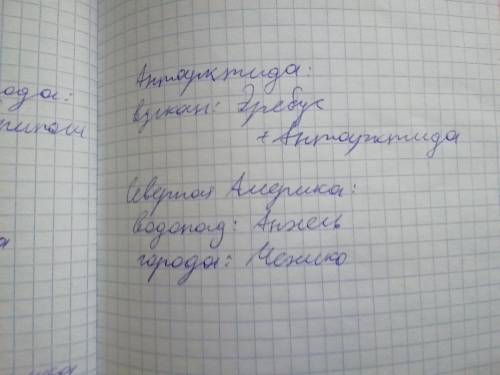 Антарктида:
вулкан: Эребус
+ Антарктида
Северная Америка:
водопад: Анхель
города: Мехико